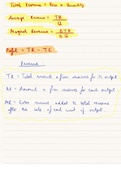 Total Revenue = Price × Quantity
Average Revenue = TR
Q
Marginal Revenue = ΔTR
ΔQ
Profit = TR - TC
Revenue
TR : Total amount a firm receives for its output.
AR : Amount a firm receives for each output.
MR : Extra amount added to total revenue
after the sale of each unit of output.